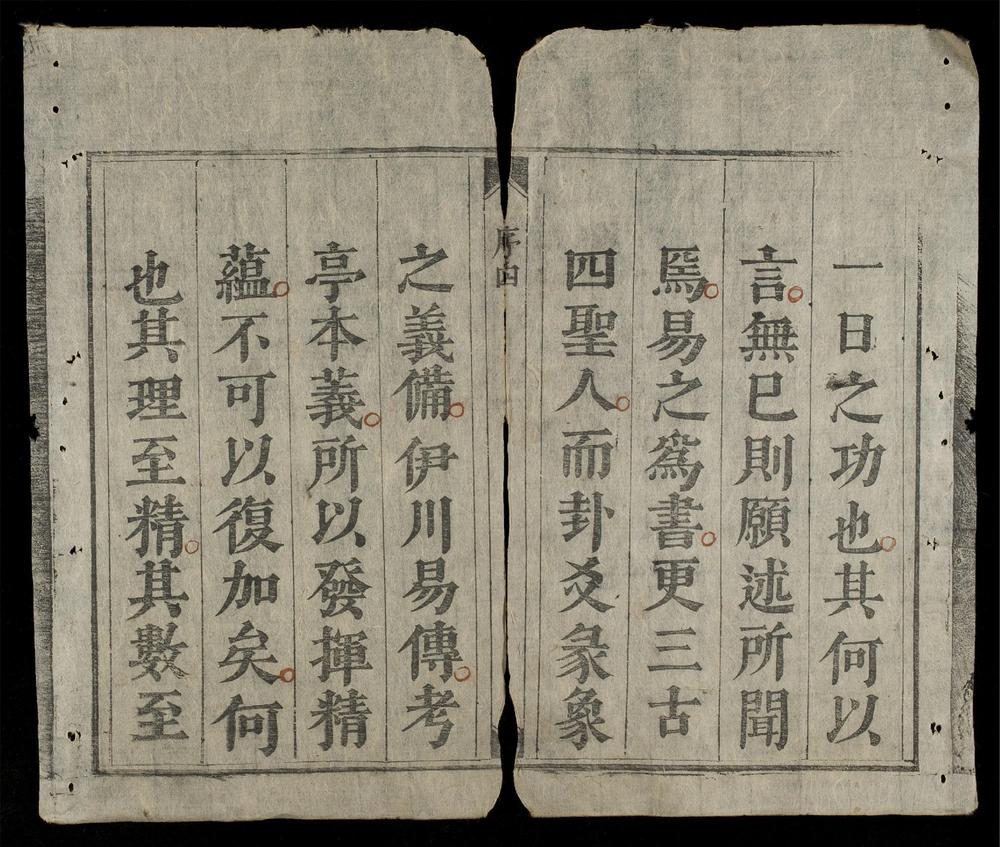 一日之功也其何以
言無已則願述所聞
焉易之爲書更三古
四聖人而卦爻彖象
序
之義備伊川易傳考
亭本義所以發揮精
蘊不可以復加矣何
也其理至精其數至